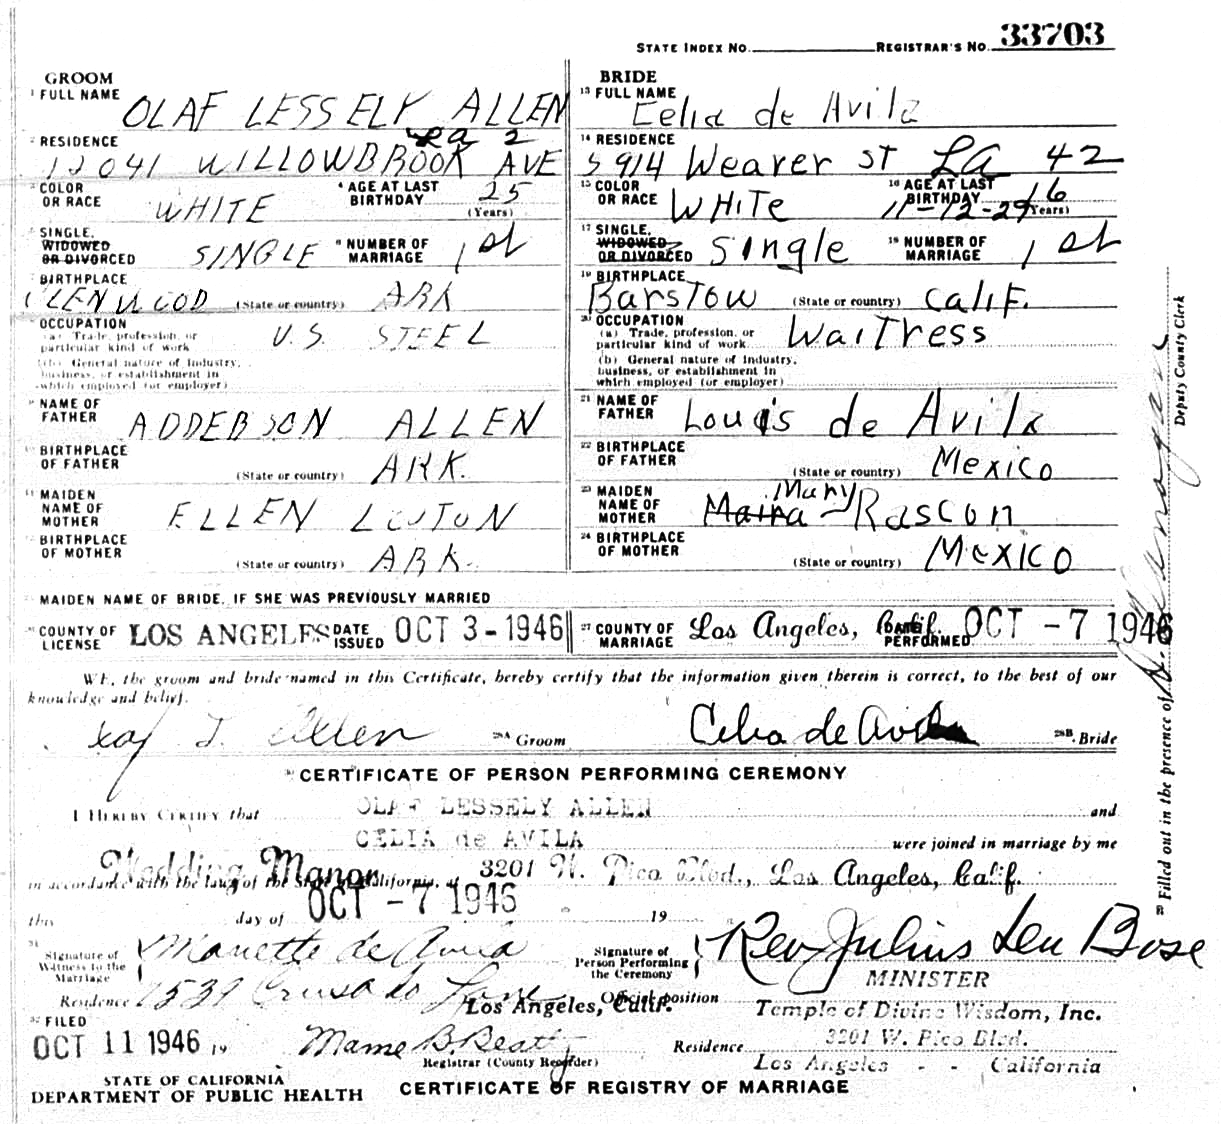 STATE INDEX NO. REGISTRAR'S NO. 33703
GROOM
1 FULL NAME OLAF LESSELY ALLEN
2 RESIDENCE 12041 WILLOWBROOK AVE LA 2
3 COLOR OR RACE WHITE 4 AGE AT LAST BIRTHDAY 25 (Years)
5 SINGLE, WIDOWED OR DIVORCED SINGLE 6 NUMBER OF MARRIAGE 1st
7 BIRTHPLACE GLENWOOD (State or country) ARK
8 OCCUPATION U.S. STEEL
(a) Trade, profession, or particular kind of work
(b) General nature of industry, business, or establishment in which employed (or employer)
9 NAME OF FATHER ADDERSON ALLEN
10 BIRTHPLACE OF FATHER (State or country) ARK.
11 MAIDEN NAME OF MOTHER ELLEN
12 BIRTHPLACE OF MOTHER (State or country) ARK.
BRIDE
13 FULL NAME Celia de Avila
14 RESIDENCE 5914 Weaver ST LA 42
15 COLOR OR RACE WHITe 16 AGE AT LAST BIRTHDAY 16 11-12-29 (Years)
17 SINGLE, WIDOWED OR DIVORCED Single 18 NUMBER OF MARRIAGE 1st
19 BIRTHPLACE Barstow (State or country) Calif.
20 OCCUPATION WaiTress
(a) Trade, profession, or particular kind of work
(b) General nature of industry, business, or establishment in which employed (or employer)
21 NAME OF FATHER Louis de Avila
22 BIRTHPLACE OF FATHER (State or country) Mexico
23 MAIDEN NAME OF MOTHER Maira Mary Rascon
24 BIRTHPLACE OF MOTHER (State or country) Mexico
25 MAIDEN NAME OF BRIDE, IF SHE WAS PREVIOUSLY MARRIED
26 COUNTY OF LICENSE LOS ANGELES DATE ISSUED OCT 3-1946 27 COUNTY OF MARRIAGE Los Angeles, Calif. DATE PERFORMED OCT -7 1946
WE, the groom and bride named in this Certificate, hereby certify that the information given therein is correct, to the best of our
knowledge and belief.
L. Allen 28A Groom Celia de Avila 28B. Bride
29 CERTIFICATE OF PERSON PERFORMING CEREMONY
I HEREBY CERTIFY that OLAF LESSELY ALLEN and
CELIA de AVILA were joined in marriage by me
in accordance with the laws of the State of California, at Wedding Manor 3201 W. Pico Blvd., Los Angeles, Calif.
this OCT -7 1946 day of 19
31 Signature of Witness to the Marriage Manette de Avila
Residence Crusado Lane Los Angeles, Calif.
Signature of Person Performing the Ceremony Rev Julius Leu Bose
Official position MINISTER
Temple of Divine Wisdom, Inc.
Residence 3201 W. Pico Blvd.
Los Angeles - - California
32 FILED OCT 11 1946 19 Mame B. Beatty
Registrar (County Recorder)
STATE OF CALIFORNIA
DEPARTMENT OF PUBLIC HEALTH CERTIFICATE OF REGISTRY OF MARRIAGE
Filled out in the presence of Deputy County Clerk